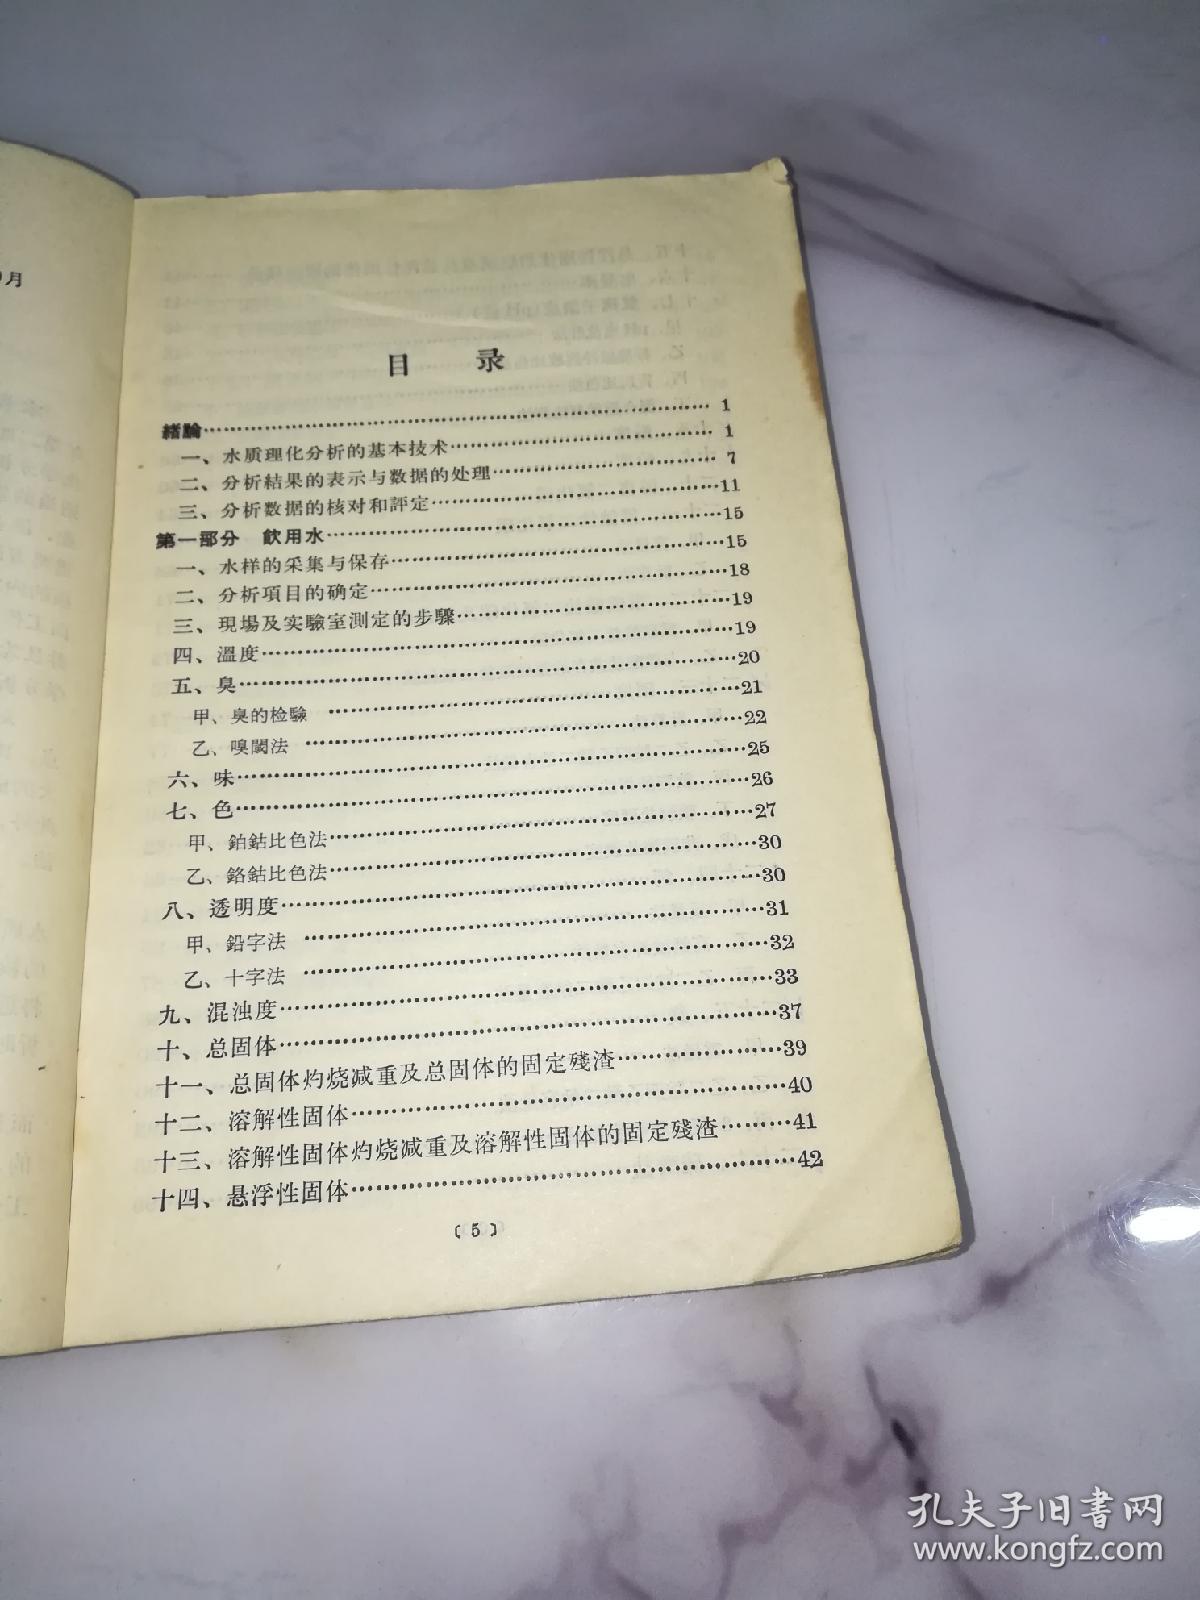 目 录
緒論……1
一、水质理化分析的基本技术……1
二、分析結果的表示与数据的处理……7
三、分析数据的核对和評定……11
第一部分 飲用水……15
一、水样的采集与保存……15
二、分析項目的确定……18
三、現場及实驗室測定的步驟……19
四、溫度……19
五、臭……20
甲、臭的检驗……21
乙、嗅閾法……22
六、味……25
七、色……26
甲、鉑鈷比色法……27
乙、鉻鈷比色法……30
八、透明度……30
甲、鉛字法……31
乙、十字法……32
九、混浊度……33
十、总固体……37
十一、总固体灼烧减重及总固体的固定殘渣……39
十二、溶解性固体……40
十三、溶解性固体灼烧减重及溶解性固体的固定殘渣……41
十四、悬浮性固体……42
〔5〕
孔夫子旧书网
www.kongfz.com